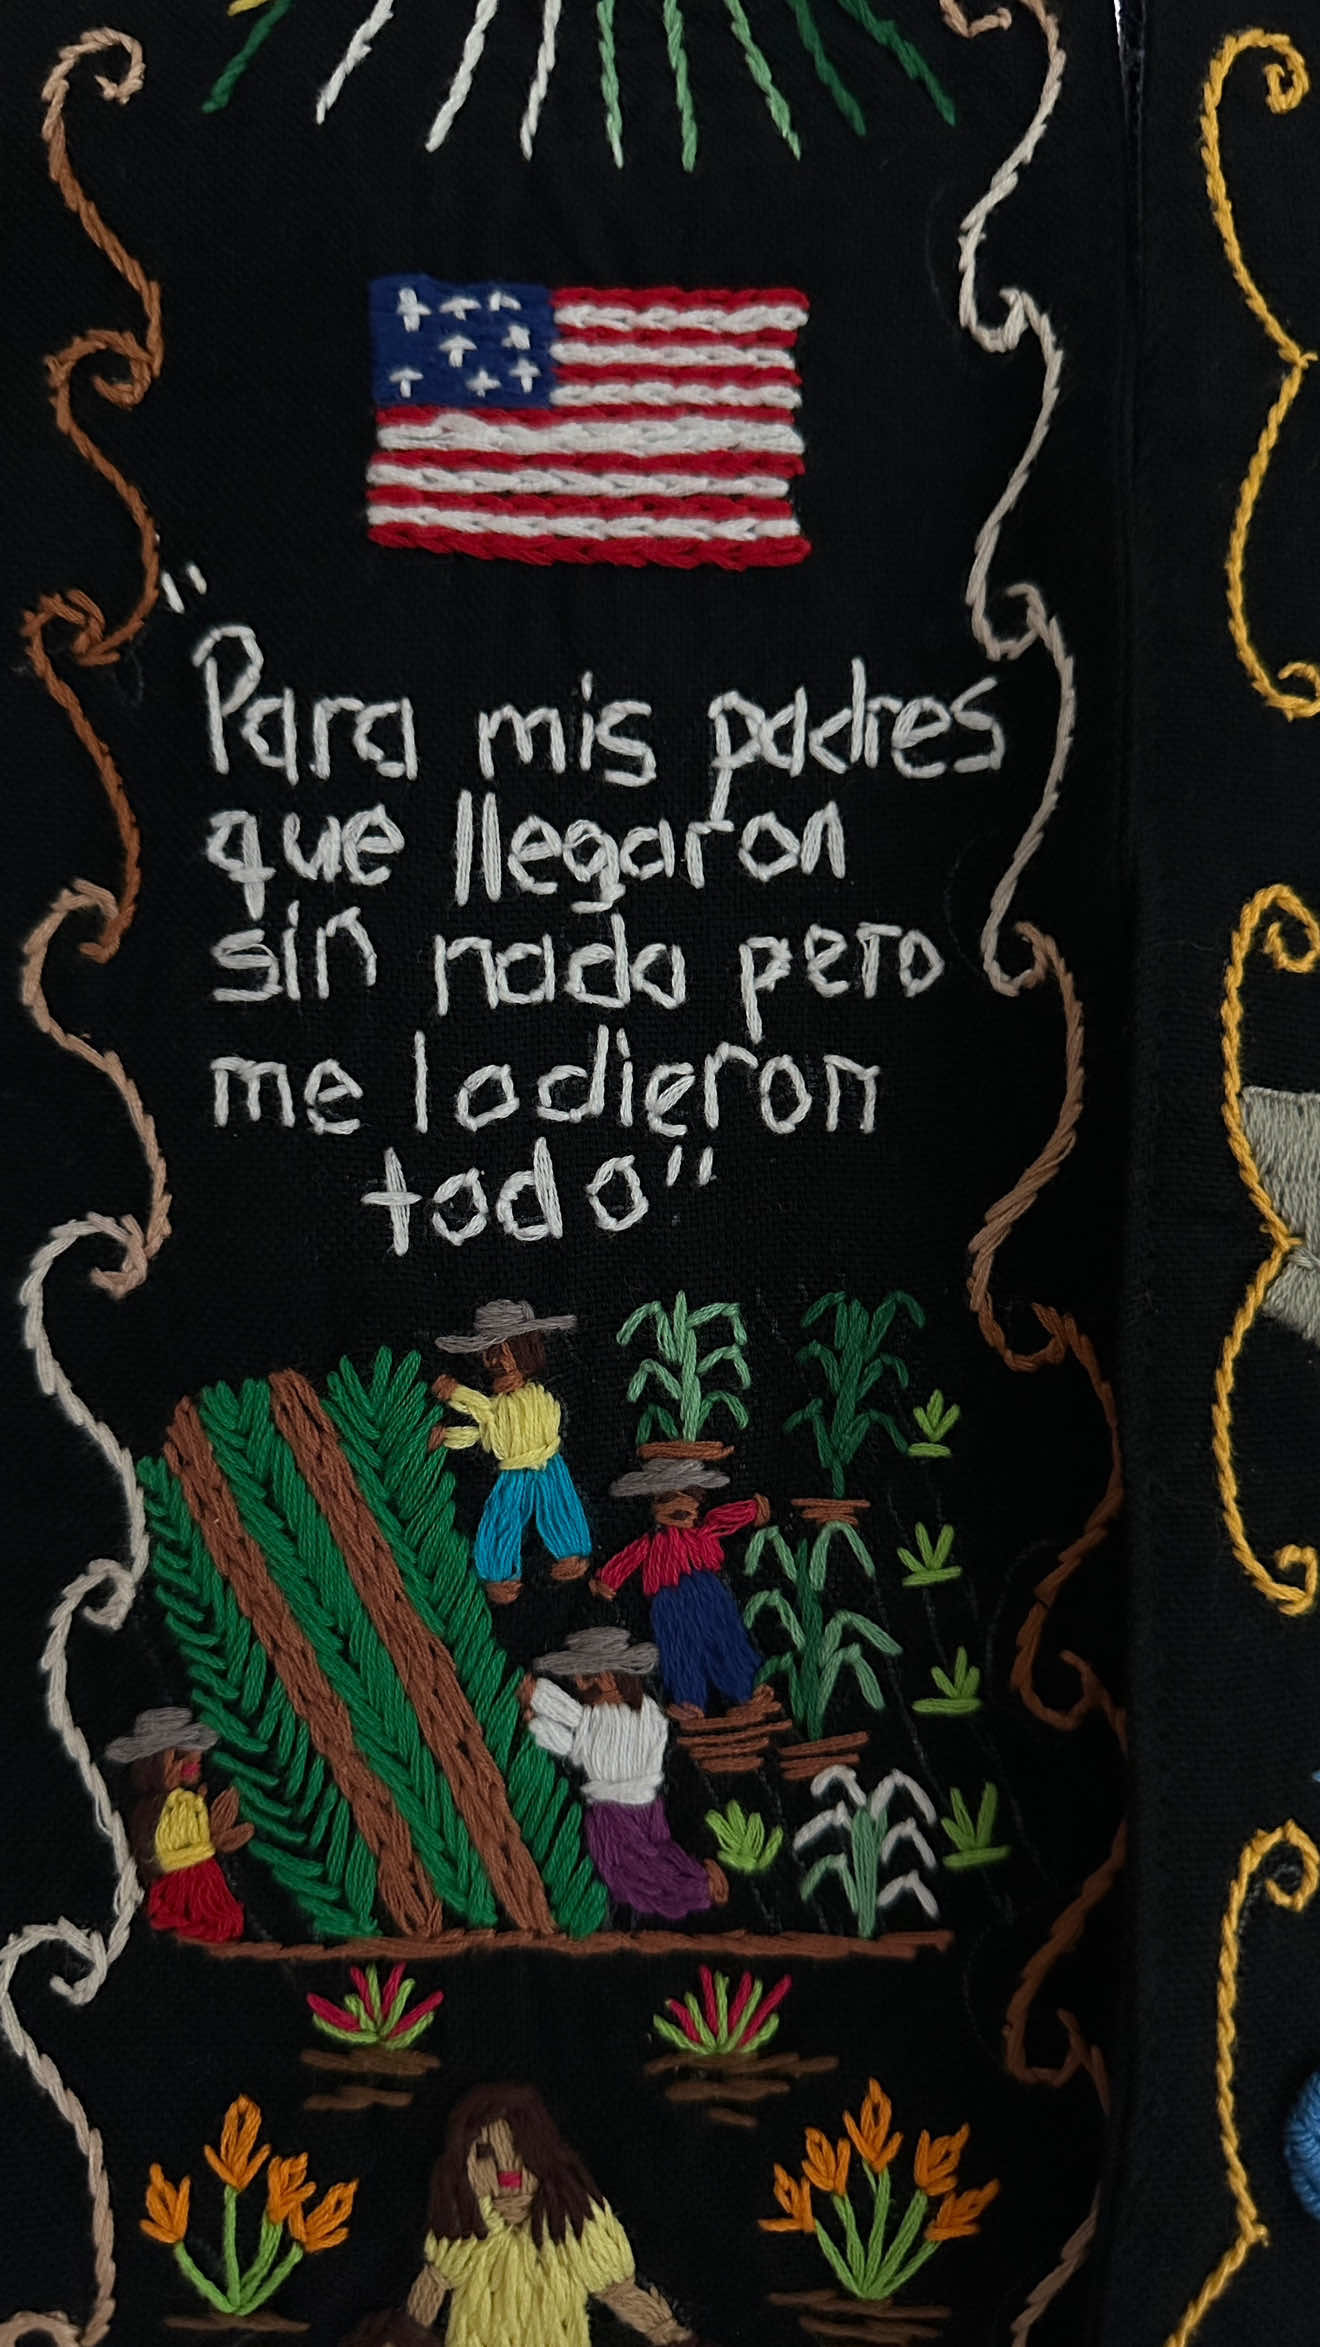 "Para mis padres
que llegaron
sin nada pero
me lo dieron
todo"